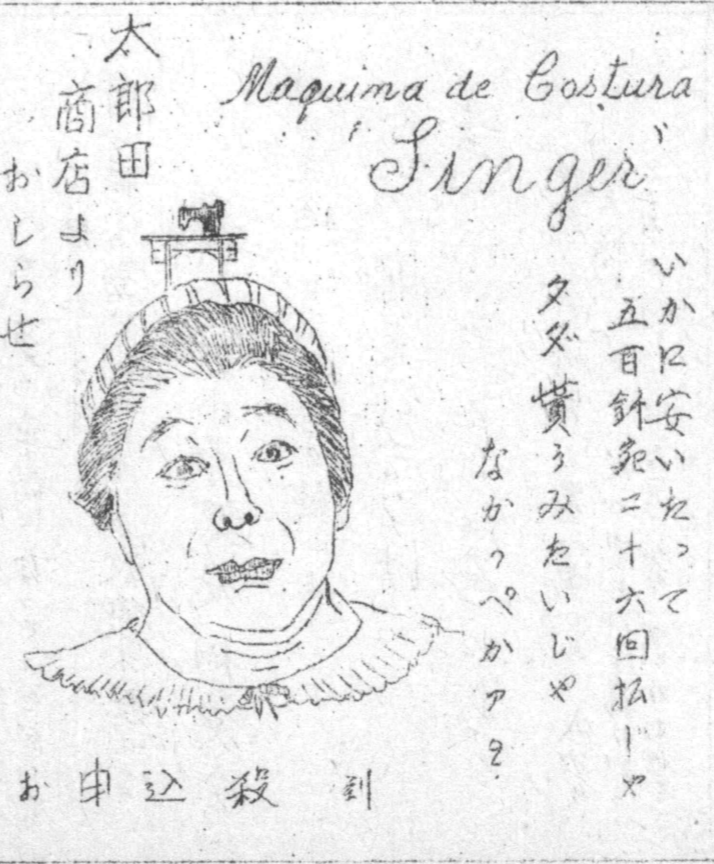 Maquina de Costura
"Singer"
いかに安いたって
五百針宛二十六回払じゃ
タダ貰うみたいじゃ
なかっぺかァ?
太郎田
商店より
おしらせ
お申込殺到